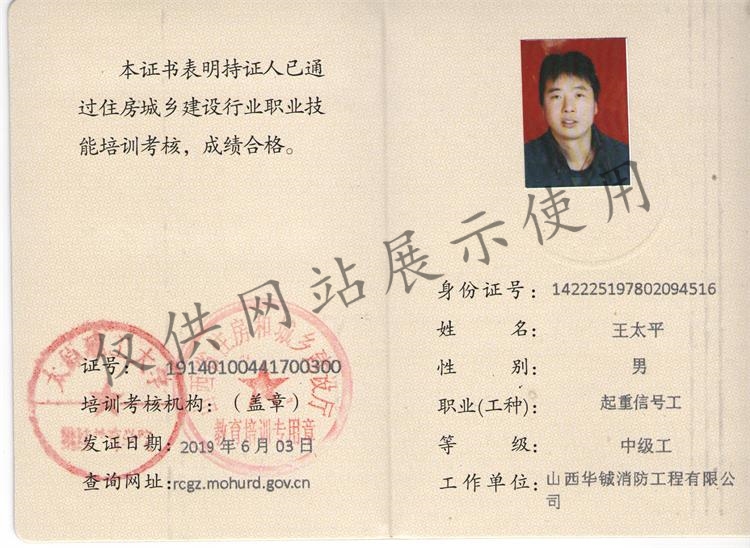 本证书表明持证人已通
过住房城乡建设行业职业技
能培训考核，成绩合格。
仅供网站展示使用
证号：19140100441700300
培训考核机构：（盖章）
发证日期：2019 年 6 月 03 日
查询网址：rcgz.mohurd.gov.cn
教育培训专用章
身份证号：142225197802094516
姓 名：王太平
性 别：男
职业(工种)：起重信号工
等 级：中级工
工作单位：山西华铖消防工程有限公
司